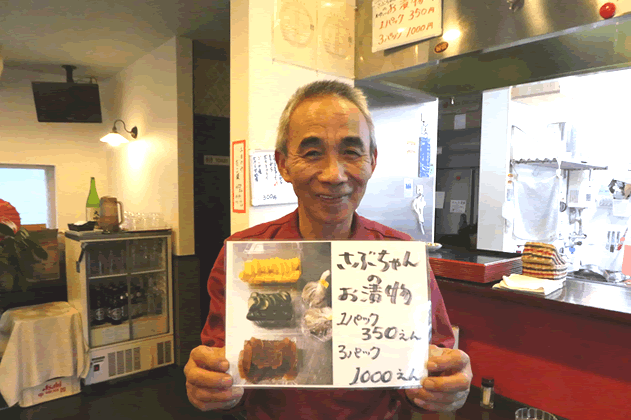 お漬物
1パック 350円
3パック 1000円
さぶちゃん
の
お漬物
1パック
350えん
3パック
1000えん
Asahi